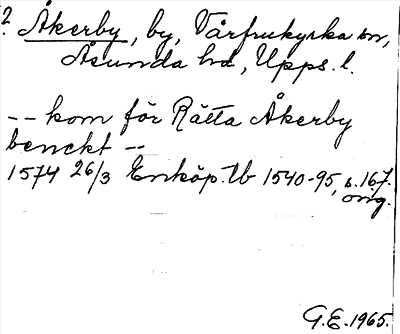 2. Åkerby, by, Vårfrukyrka sn,
Åsunda hd, Upps. l.
-- kom för Rätta Åkerby
benckt --
1574 26/3 Enköp. tb 1540-95, s. 167.
orig.
G.E. 1965.